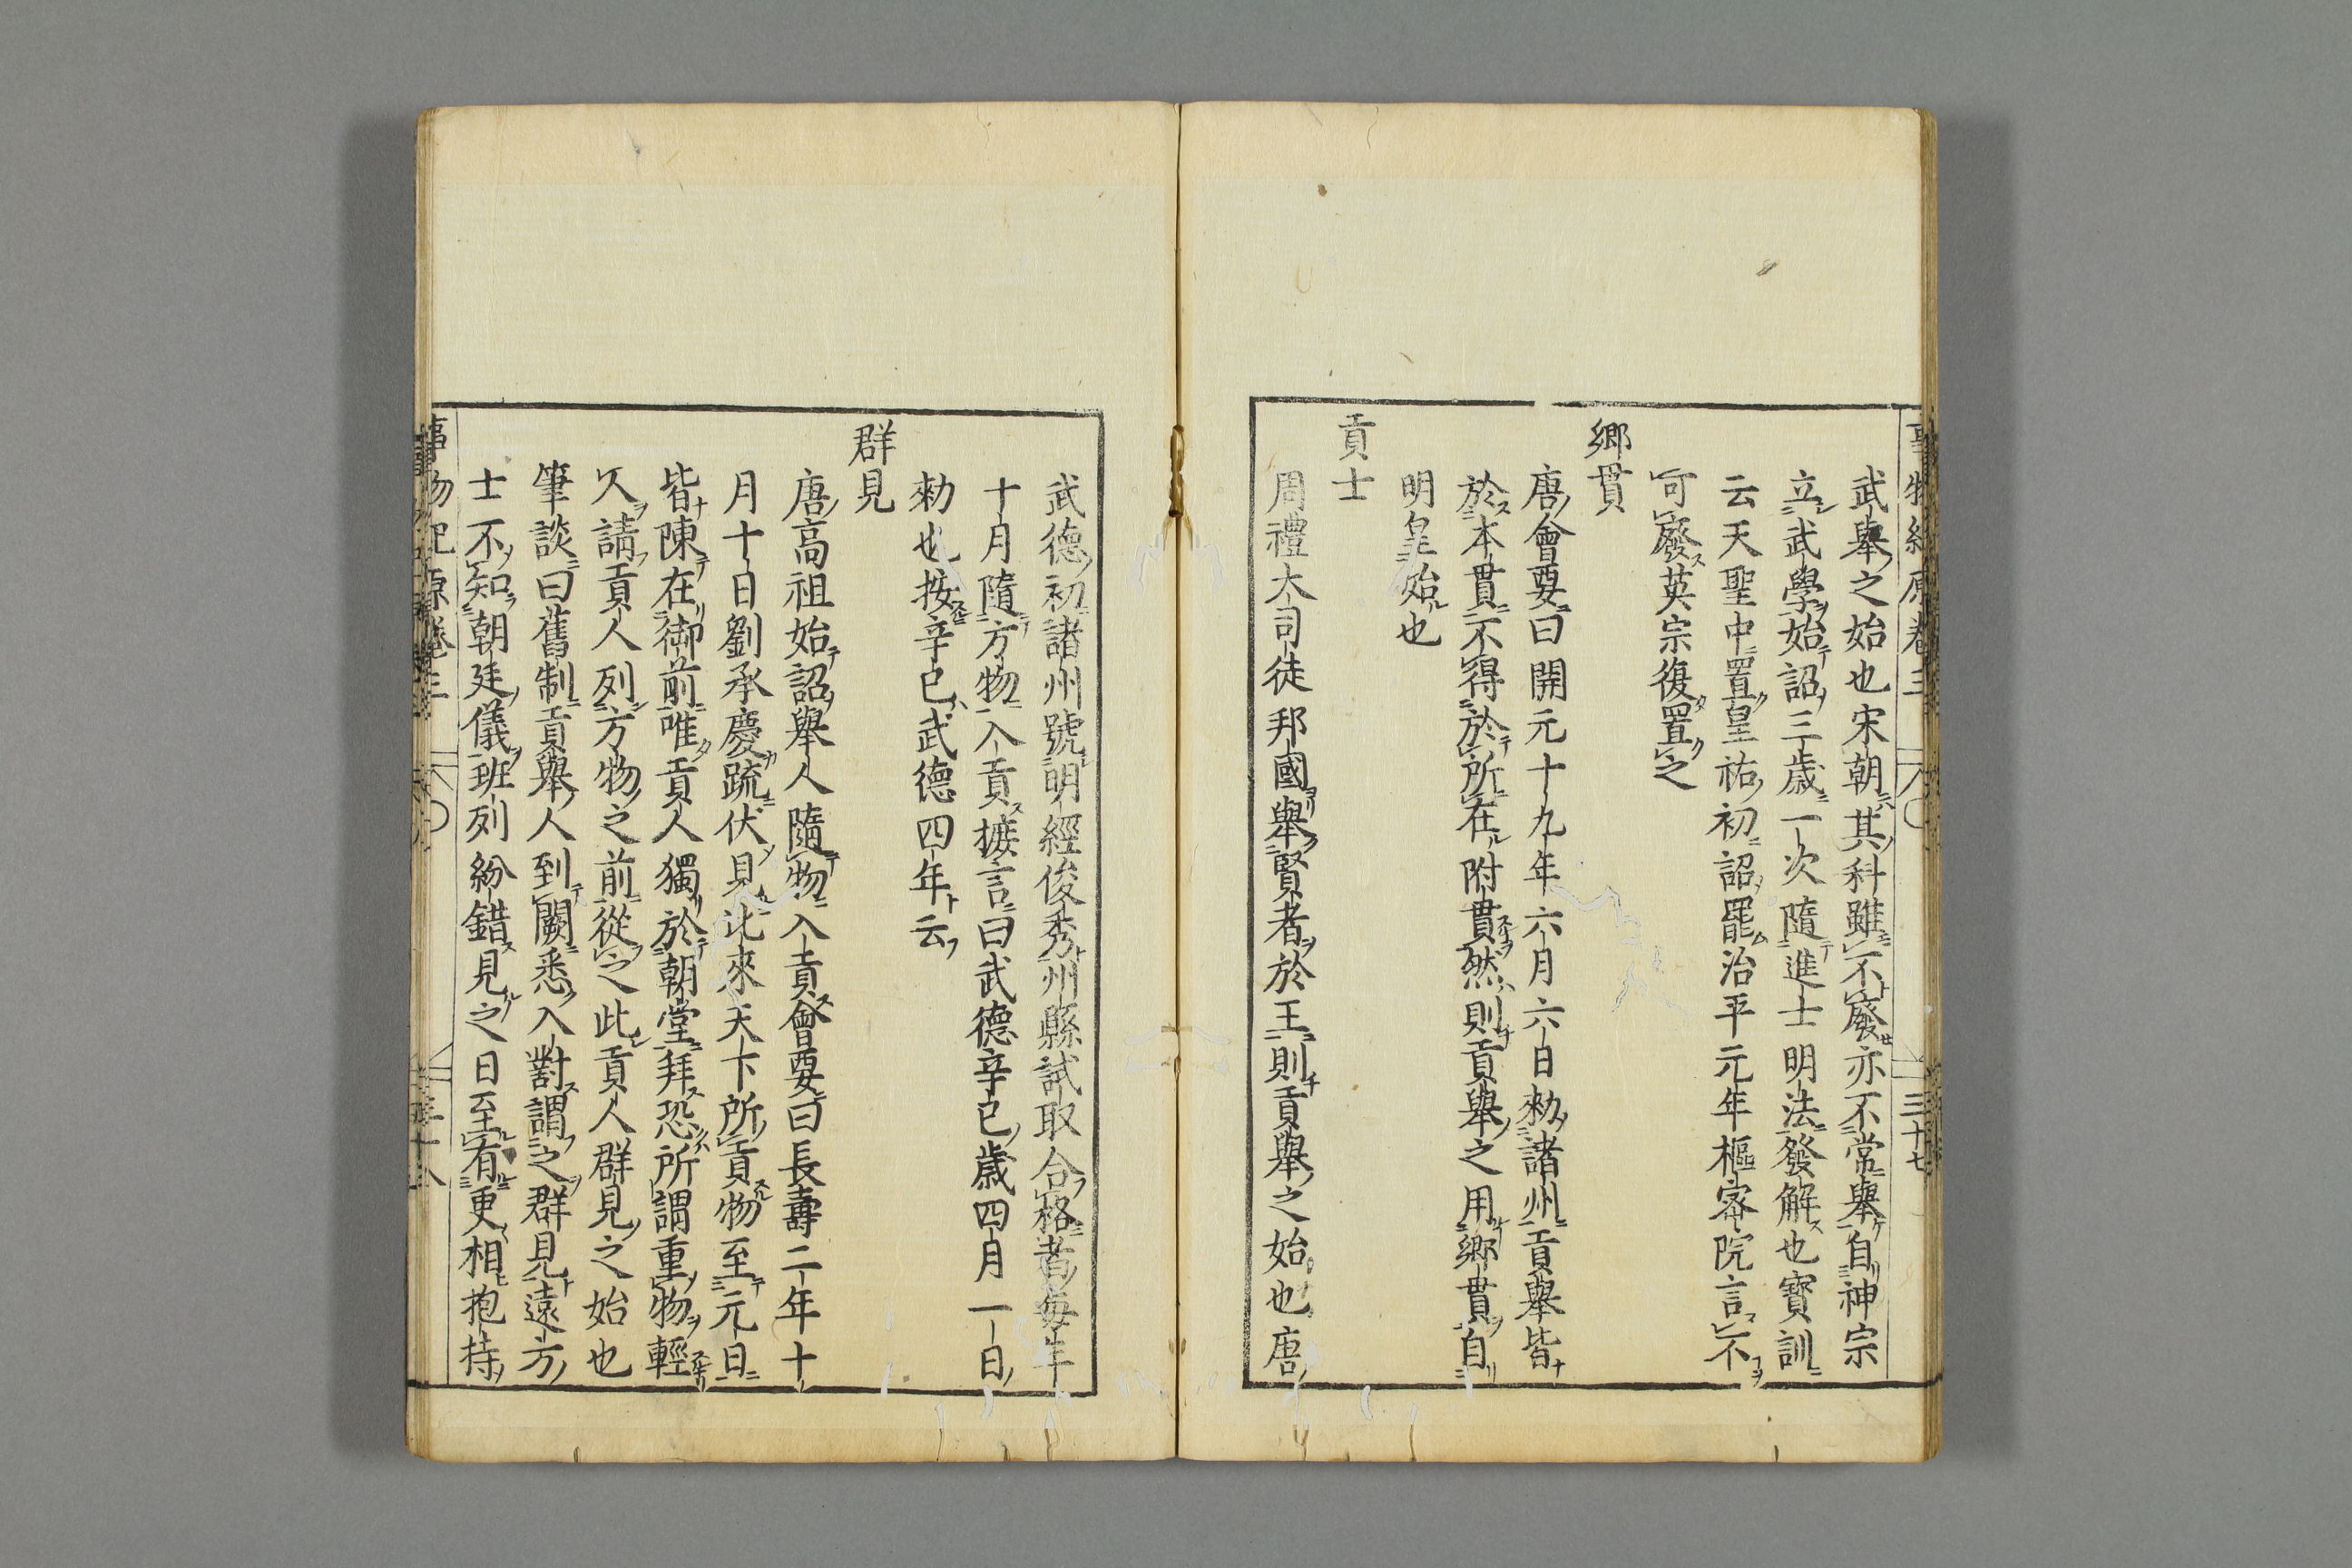 事物紀原卷三
三十七
武舉之始也宋朝其科雖不廢亦不常舉自神宗
立武學始詔三歳一次隨進士明法發解也寳訓
云天聖中置皇祐初詔罷治平元年樞宻院言不
可廢英宗復置之
鄉貫
唐會要曰開元十九年六月六日勑諸州貢舉皆
於本貫不得於所在附貫然則貢舉之用鄉貫自
明皇始也
貢士
周禮大司徒邦國舉賢者於王則貢舉之始也唐
武德初諸州號明經俊秀州縣試取合格者每年
十月隨方物入貢摭言曰武德辛巳歳四月一日
勑也按辛巳武德四年云
群見
唐高祖始詔舉人隨物入貢會要曰長壽二年十
月十日劉承慶䟽伏見比來天下所貢物至元日
皆陳在御前唯貢人獨於朝堂拜恐所謂重物輕
人請貢人列方物之前從之此貢人群見之始也
筆談曰舊制貢舉人到闕悉入對謂之群見遠方
士不知朝廷儀班列紛錯見之日至有更相抱持
事物紀原卷三
三十八